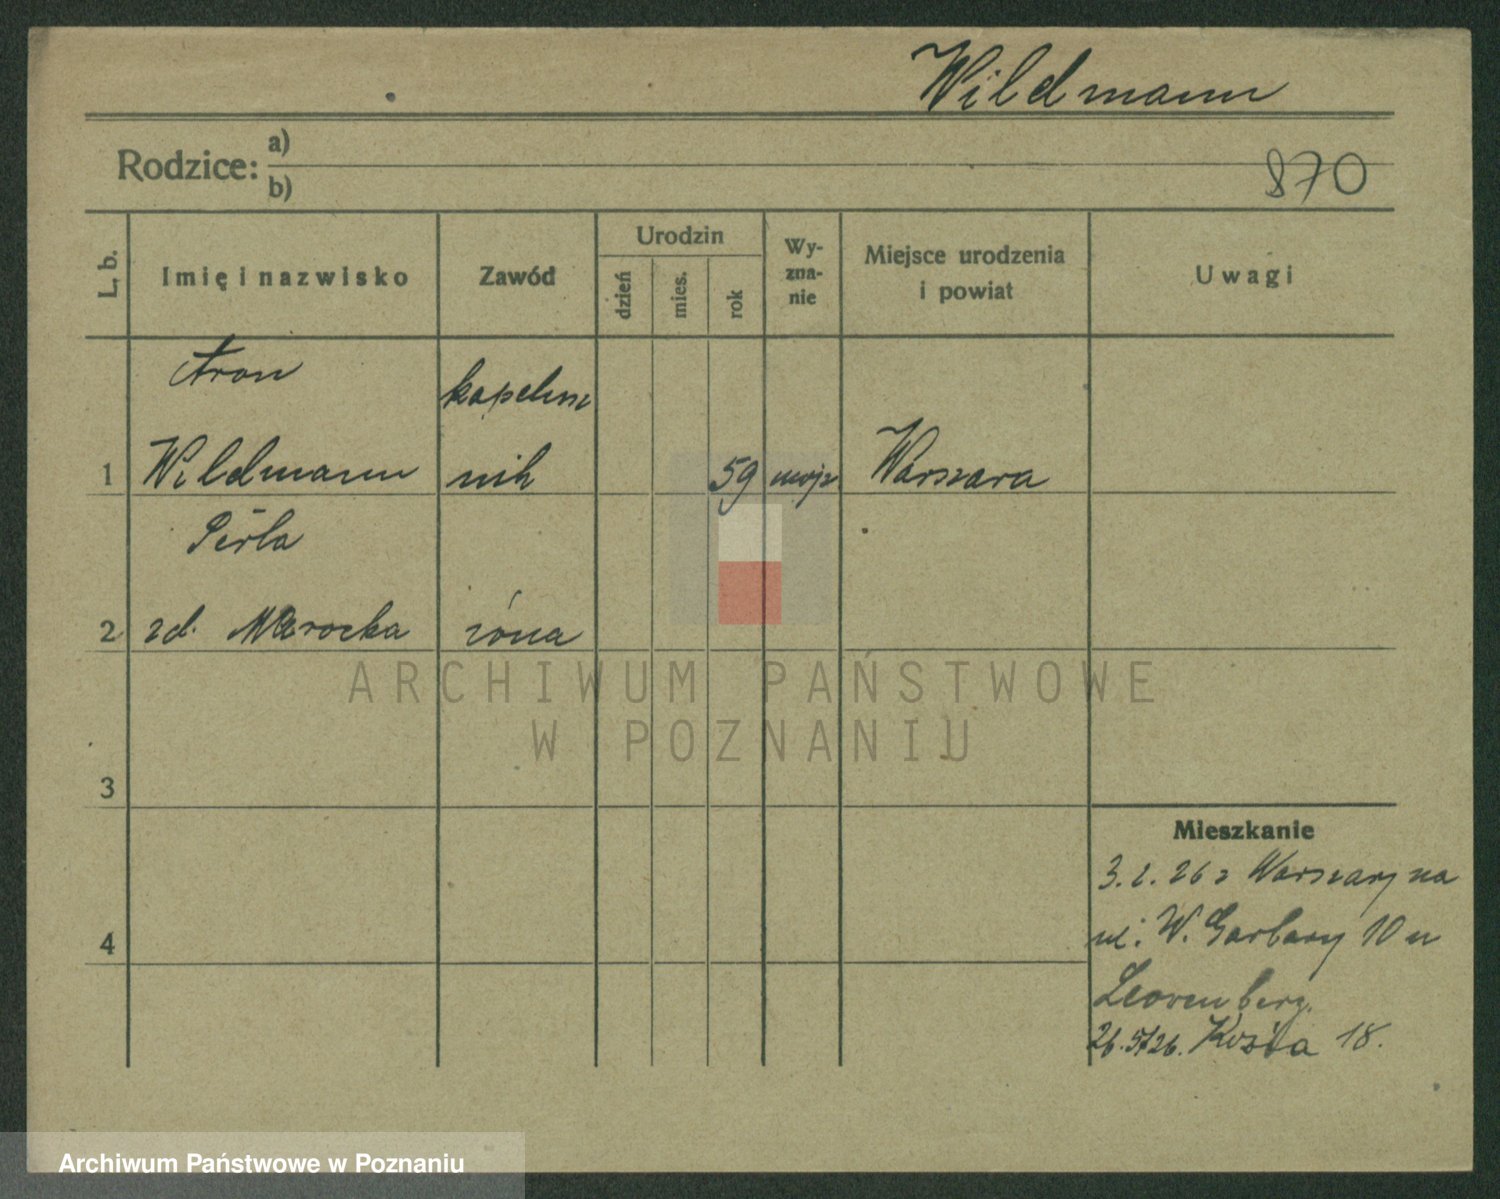 Wildmann
Rodzice: a)
b)
870
L. b.
Imię i nazwisko
Zawód
Urodzin
dzień
mies.
rok
Wy-
zna-
nie
Miejsce urodzenia
i powiat
Uwagi
Aron
kapelusz
1 Wildmann nik 59 mojż Warszawa
Perla
2 zd. Marocka żona
ARCHIWUM PAŃSTWOWE
W POZNANIU
3
Mieszkanie
3. 2. 26 z Warszawy na
4
ul. W. Garbary 10 u
Loevenberg.
26. 5. 26. Kozia 18.
Archiwum Państwowe w Poznaniu